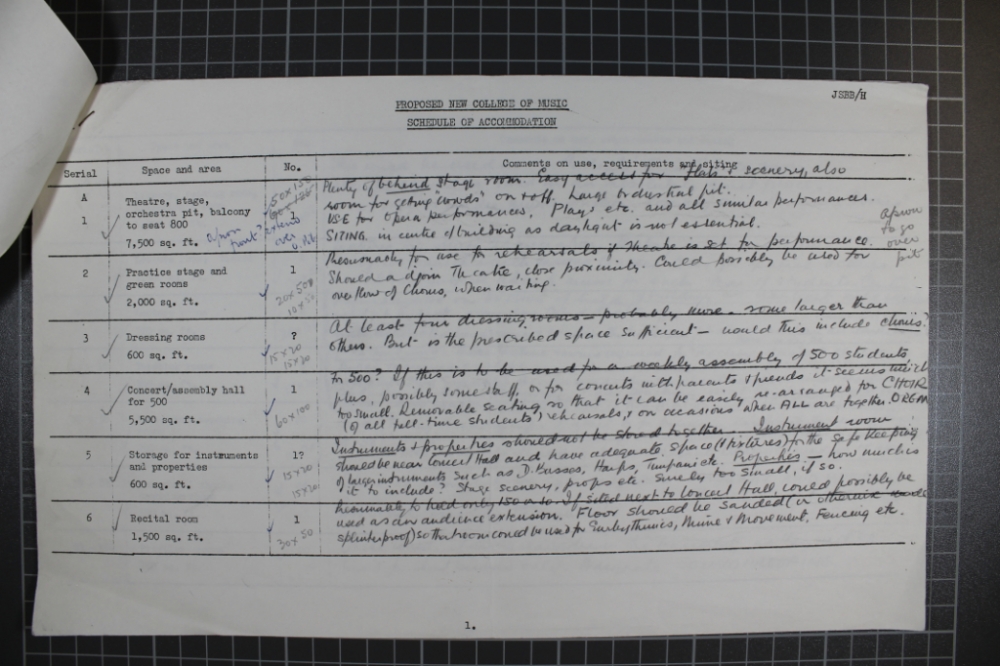 JSBB/H
PROPOSED NEW COLLEGE OF MUSIC
SCHEDULE OF ACCOMMODATION
Serial Space and area No. Comments on use, requirements and siting
A
1
Theatre, stage,
orchestra pit, balcony
to seat 800
7,500 sq. ft.
50 x 150
1
apron
front?
over
Plenty of behind stage room. Easy access for flats & scenery, also
room for getting "crowds" on & off. Large orchestral pit.
USE for Opera performances, Plays etc. and all similar performances.
SITING. in centre of building as daylight is not essential.
apron
to go
over
pit
2
Practice stage and
green rooms
2,000 sq. ft.
1
Presumably for use for rehearsals if Theatre is set for performance.
Should adjoin Theatre, close proximity. Could possibly be used for
overflow of Chorus, when waiting.
3
Dressing rooms
600 sq. ft.
?
15 x 20
15 x 20
At least four dressing rooms – probably more – some larger than
others. But is the prescribed space sufficient – would this include chorus?
4
Concert/assembly hall
for 500
5,500 sq. ft.
1
60 x 100
For 500? If this is to be used for a weekly assembly of 500 students,
plus, possibly some staff, or for concerts with parents & friends it seems much
too small. Removable seating so that it can be easily re-arranged for CHOIR
(of all full-time students) rehearsals, & on occasions when ALL are together. ORGAN
5
Storage for instruments
and properties
600 sq. ft.
1?
15 x 20
15 x 20
Instruments & properties should not be stored together. Instrument room
should be near Concert Hall and have adequate space (& fixtures) for the safe keeping
of larger instruments such as D. Basses, Harps, Timpani etc. Properties – how much is
it to include? Stage scenery, props etc. Surely too small, if so.
6
Recital room
1,500 sq. ft.
1
30 x 50
Presumably to hold only 150 or so. If sited next to Concert Hall, could possibly be
used as an audience extension. Floor should be sanded (or otherwise made
splinterproof) so that room could be used for Eurhythmics, Mime & Movement, Fencing etc.
1.